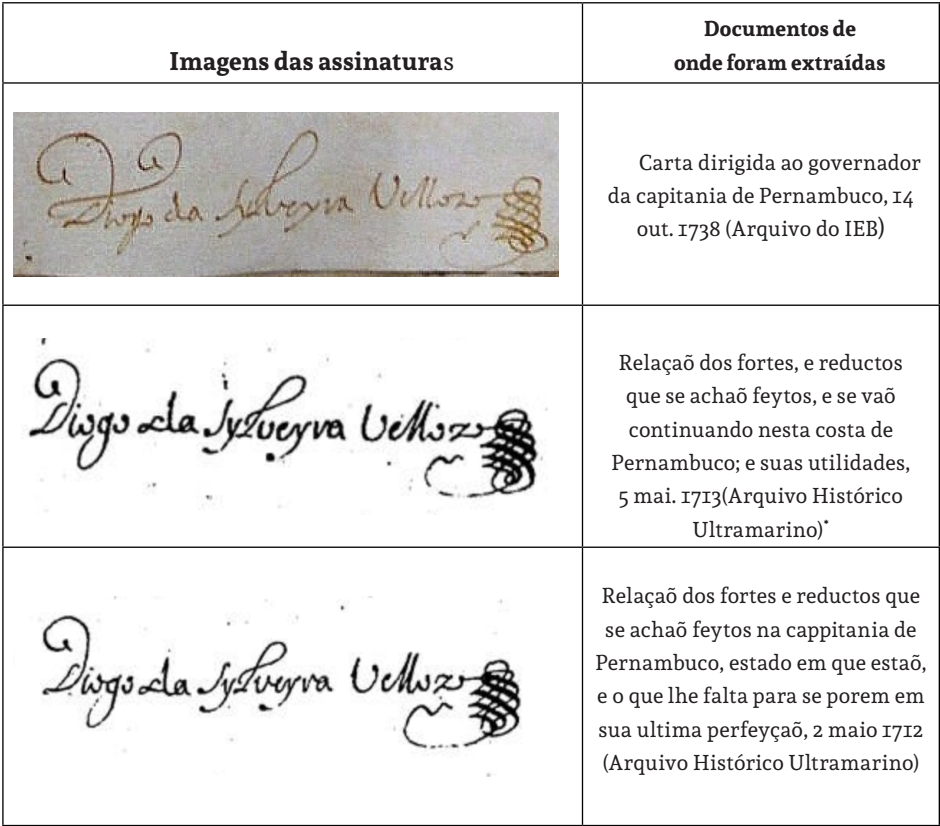 Imagens das assinaturas
Documentos de
onde foram extraídas
Diogo da Sylveyra Vellozo
Carta dirigida ao governador
da capitania de Pernambuco, 14
out. 1738 (Arquivo do IEB)
Diogo da Sylveyra Vellozo
Relaçaõ dos fortes, e reductos
que se achaõ feytos, e se vaõ
continuando nesta costa de
Pernambuco; e suas utilidades,
5 mai. 1713(Arquivo Histórico
Ultramarino)*
Diogo da Sylveyra Vellozo
Relaçaõ dos fortes e reductos que
se achaõ feytos na cappitania de
Pernambuco, estado em que estaõ,
e o que lhe falta para se porem em
sua ultima perfeyçaõ, 2 maio 1712
(Arquivo Histórico Ultramarino)